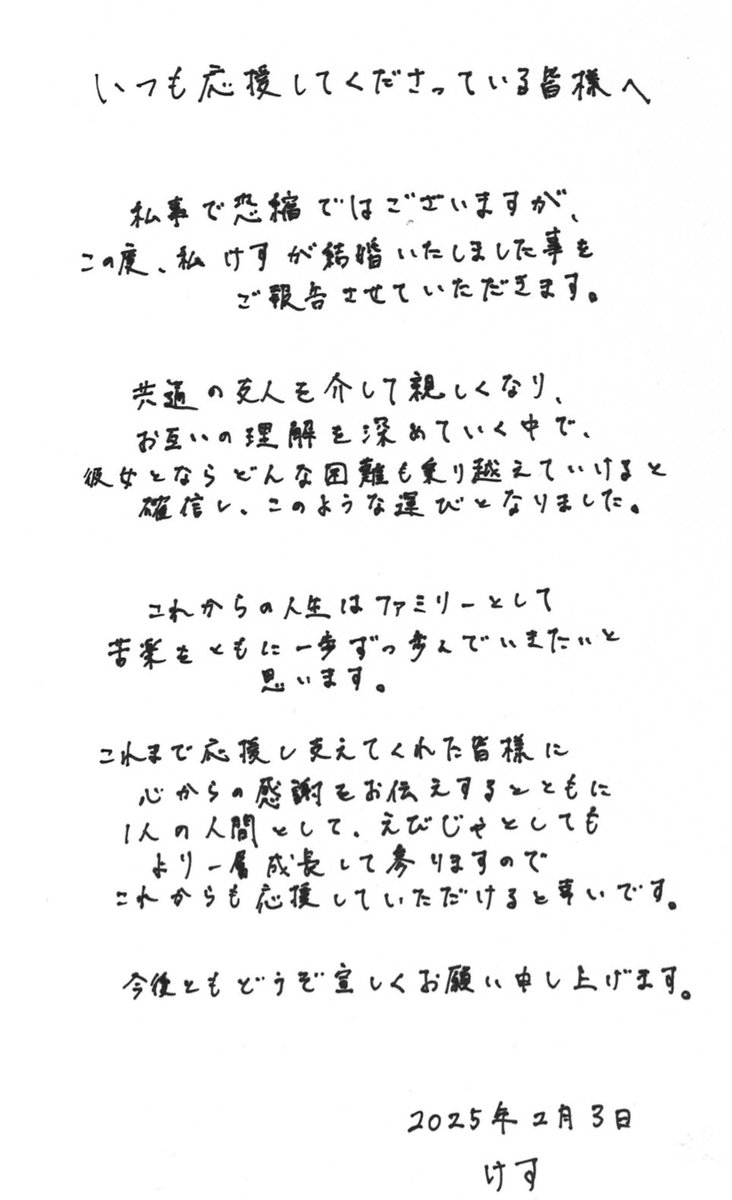 いつも応援してくださっている皆様へ
私事で恐縮ではございますが、
この度、私 けすが結婚いたしました事を
ご報告させていただきます。
共通の友人を介して親しくなり、
お互いの理解を深めていく中で、
彼女とならどんな困難も乗り越えていけると
確信し、このような運びとなりました。
これからの人生はファミリーとして
苦楽をともに一歩ずつ歩んでいきたいと
思います。
これまで応援し支えてくれた皆様に
心からの感謝をお伝えするとともに
1人の人間として、えびじゃとしても
より一層成長して参りますので
これからも応援していただけると幸いです。
今後ともどうぞ宜しくお願い申し上げます。
2025年2月3日
けす